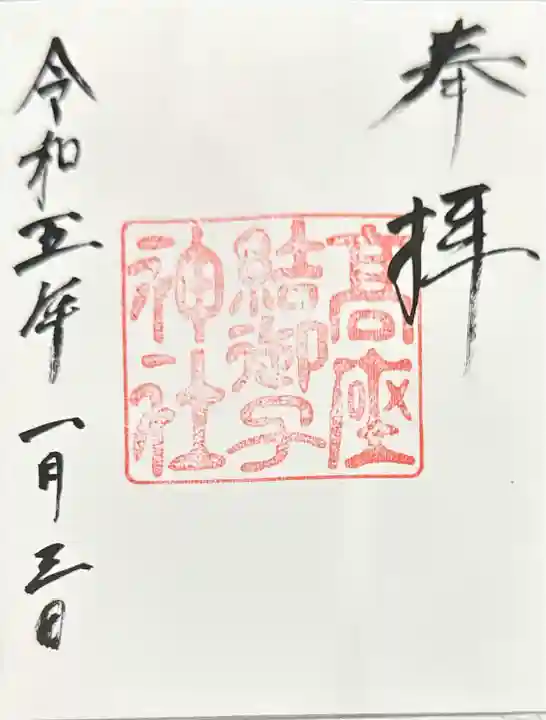 奉拝
髙座
結御子
神社
令和五年一月三日